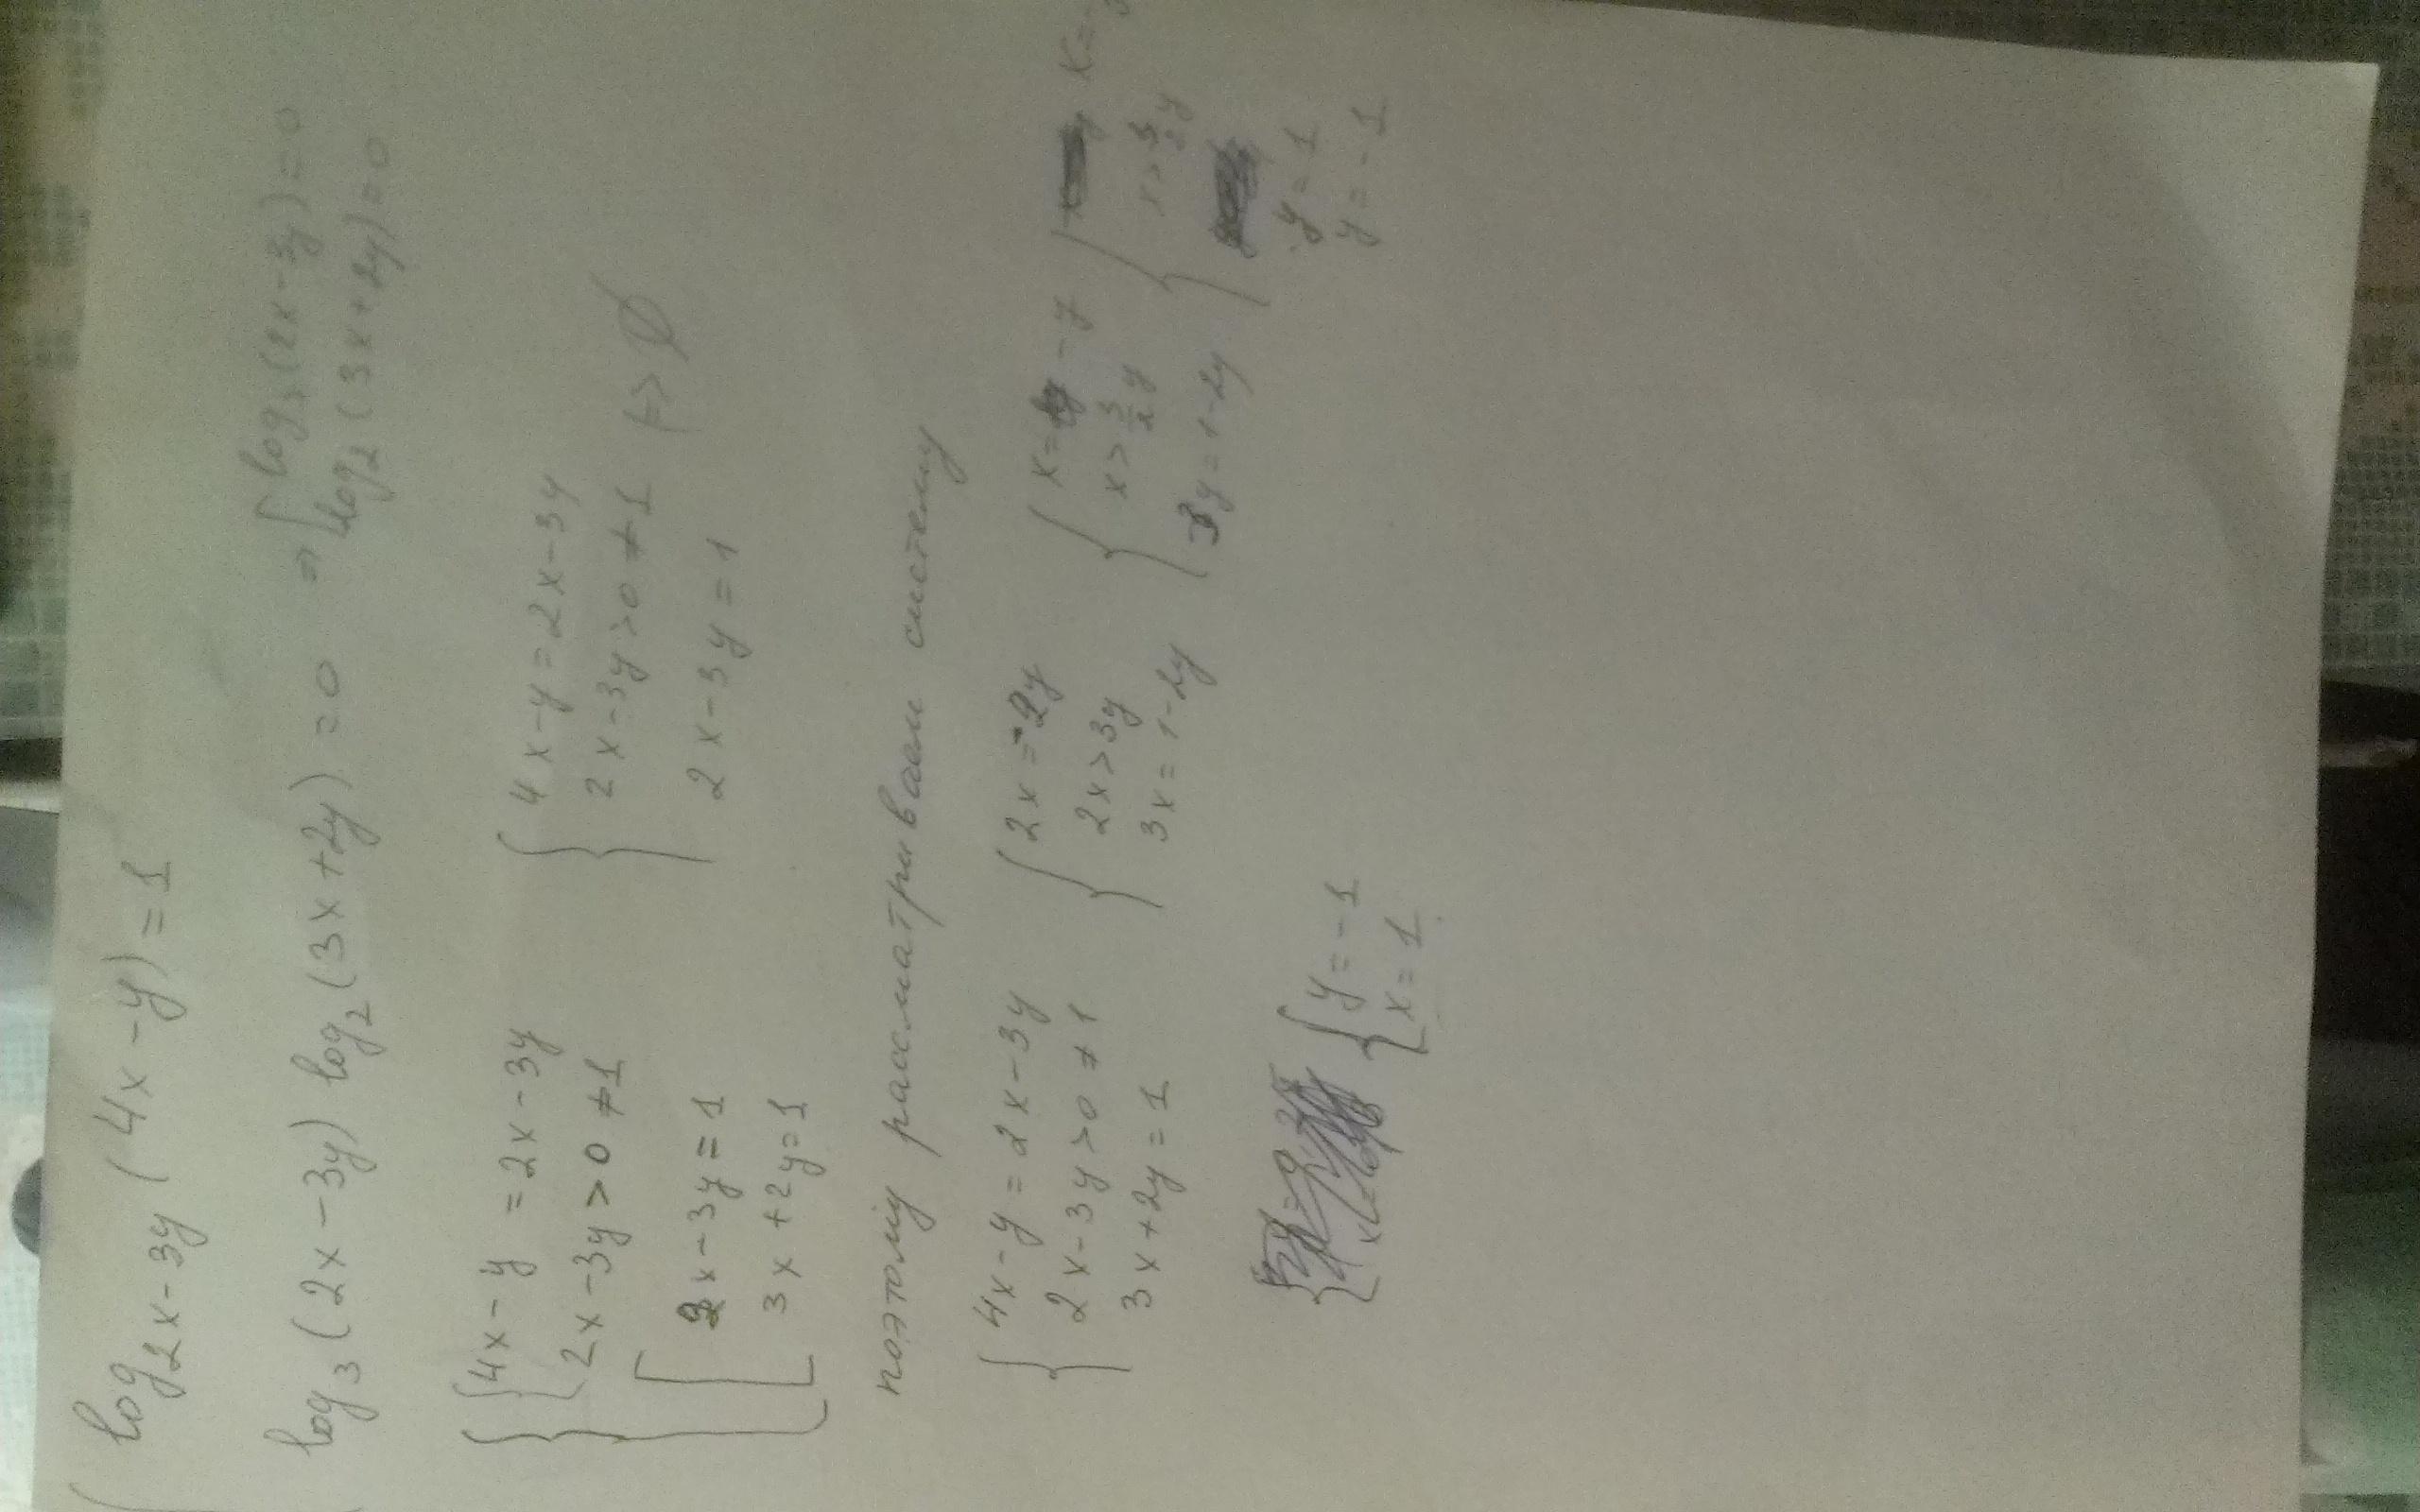 log₂ₓ₋₃ᵧ(4x-y)=1
log₃(2x-3y)log₂(3x+2y)=0 ⇒ [ log₃(2x-3y)=0
log₂(3x+2y)=0
{ { 4x-y=2x-3y
2x-3y>0≠1
[ 2x-3y=1
3x+2y=1
{ 4x-y=2x-3y
2x-3y>0≠1
2x-3y=1
|=> ∅
поэтому рассматриваем систему
{ 4x-y=2x-3y
2x-3y>0≠1
3x+2y=1
{ 2x=-2y
2x>3y
3x=1-2y
{ x=-y
x>3/2y
-3y=1-2y
{ x=-y
x>3/2y
-y=1
y=-1
{ y=-1
x=1